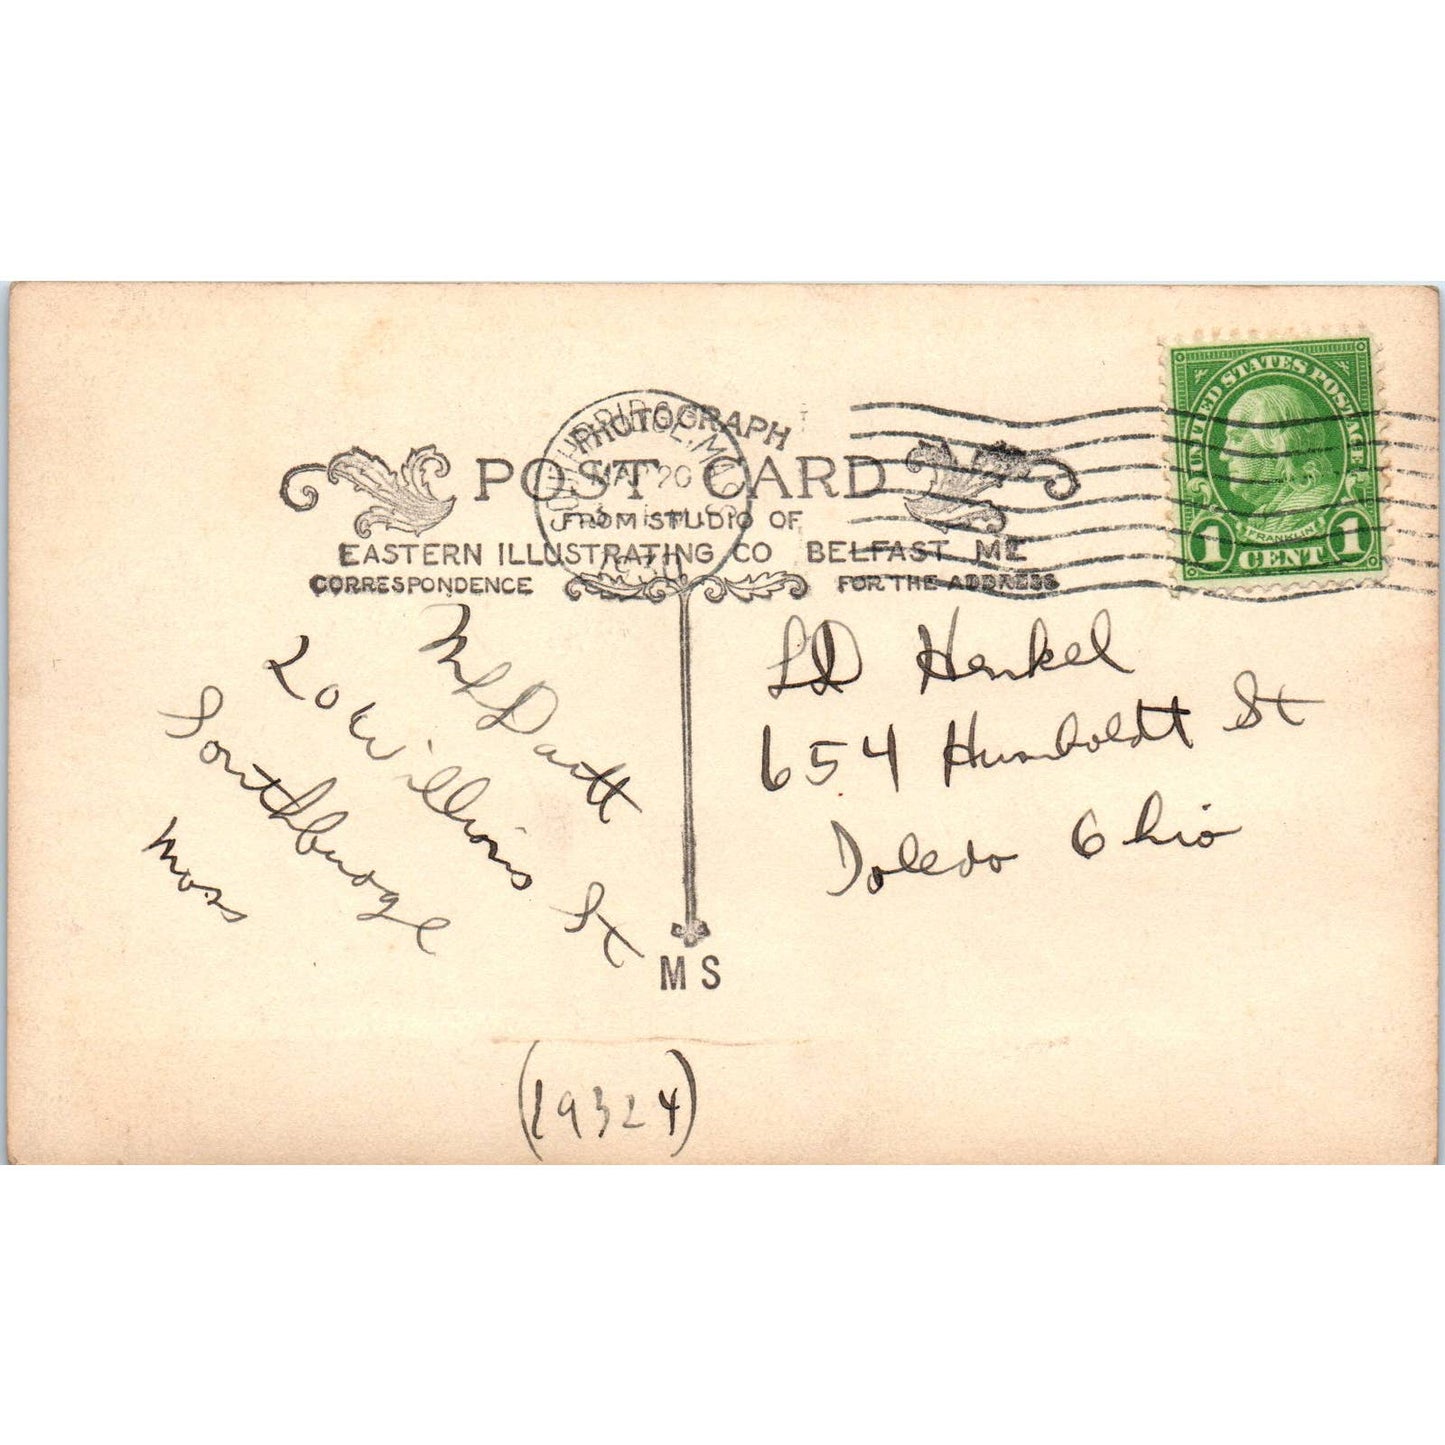 PHOTOGRAPH
POST CARD
FROM STUDIO OF
EASTERN ILLUSTRATING CO BELFAST ME
CORRESPONDENCE FOR THE ADDRESS
MAY 20
UNITED STATES POSTAGE
FRANKLIN
1 CENT 1
20 Williams St
Southbridge
Mass
LD Henkel
654 Humboldt St
Toledo Ohio
M S
(19324)